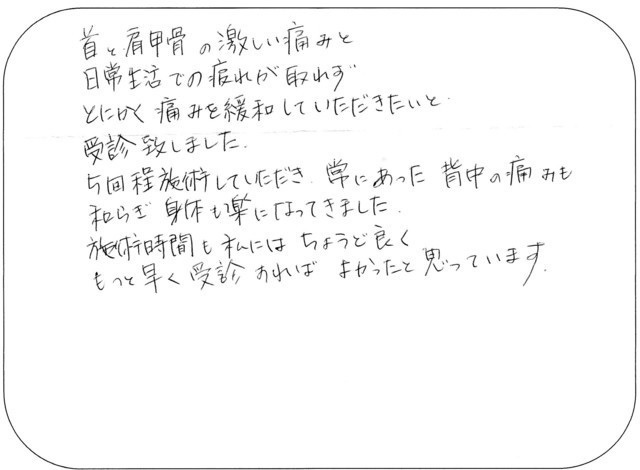 首と肩甲骨の激しい痛みと
日常生活での疲れが取れず
とにかく痛みを緩和していただきたいと.
受診致しました.
5回程施術していただき.常にあった背中の痛みも
和らぎ身体も楽になってきました.
施術時間も私にはちょうど良く
もっと早く受診すればよかったと思っています.